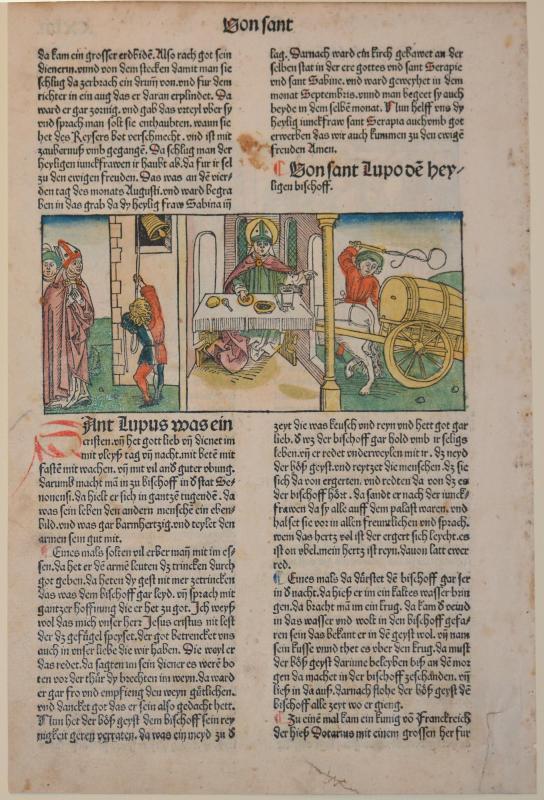 Von sant
da kam ein grosser erdbidē. Also rach got sein
dienerin. vnnd von dem stecken damit man sie
schlug da zerbrach ein drum von. vnd fur dem
richter in ein aug das er daran erplindet. Da
ward er gar zornig. vnd gab das vrteyl vber sy
vnd sprach man solt sie enthaubten. wann sie
het des Keysers bot verschmecht. vnd ist mit
zaubernuß vmb gegangē. Da schlug man der
heyligen iunckfrawen ir haubt ab. da fur ir sel
zu den ewigen freuden. Das was an dē vier-
den tag des monats Augusti. vnd ward begra
ben in das grab da dy heylig fraw Sabina iñ
lag. Darnach ward ein kirch gebawet an der
selben stat in der ere gottes vnd sant Serapie
vnd sant Sabine. vnd ward geweyhet in dem
monat Septembris. vnnd man begeet sy auch
beyde in dem selbē monat. Nun helff vns dy
heylig iunckfraw sant Serapia auch vmb got
erwerben das wir auch kummen zu den ewigē
freuden Amen.
Von sant Lupo dē hey-
ligen bischoff.
Sant Lupus was ein
cristen. vñ het got lieb vñ dienet im
mit vleyß tag vñ nacht. mit betē mit
fastē mit wachen. vñ mit vil and guter vbung.
darumb macht mā in zu bischoff in d stat Se-
nonensi. da hielt er sich in gantzē tugendē. da
was sein leben den andern menschē ein eben-
bild. vnd was gar barmhertzig. vnd teylet den
armen sein gut mit.
Eines mals solten vil erber mañ mit im es-
sen. da het er dē armē leuten dz trincken durch
got geben. da heten dy gest nit mer zetrincken
das was dem bischoff gar leyd. vñ sprach mit
gantzer hoffnung die er het zu got. Ich weyß
wol das mich vnser herr Jesus cristus nit lest
der dz gefügel speyset. der got betrencket vns
auch in vnser liebe die wir haben. Die weyl er
das redet. da sagten im sein diener es werē bo
ten vor der thür dy brechten im weyn. da ward
er gar fro vnd empfieng den weyn gütlichen.
vnd dancket got das er sein also gedacht hett.
Nun het der böß geyst dem bischoff sein rey
nigkeit geren verraten. da was ein meyd zu d
zeyt die was keusch vnd reyn vnd hett got gar
lieb. d wz der bischoff gar hold vmb ir seligs
leben. vñ er redet vnderweylen mit ir. dz neyd
der böß geyst. vnd reytzet die menschen. dz sie
sich da von ergerten. vnd redten da von dz es
der bischoff hört. da sandt er nach der iunck-
frawen da sy alle auff dem palast waren. vnd
halset sie vor in allen freuntlichen vnd sprach.
wem das hertz vol ist der ergert sich leycht. es
ist on vbel. mein hertz ist reyn. dauon latt ewer
red.
Eines mals da dürstet dē bischoff gar ser
in d nacht. da hieß er im ein kaltes wasser brin
gen. da bracht mā im ein krug. da kam d veind
in das wasser vnd wolt in den bischoff gefa-
ren sein das bekant er in dē geyst wol. vñ nam
sein kusse vnnd thet es vber den krug. da must
der böß geyst darinne beleyben biß an dē mor
gen da machet in der bischoff zeschanden. vñ
ließ in da auß. Darnach flohe der böß geyst dē
bischoff alle zeyt wo er gieng.
Zu einē mal kam ein kunig vō Franckreich
der hieß Dotarius mit einem grossen her für